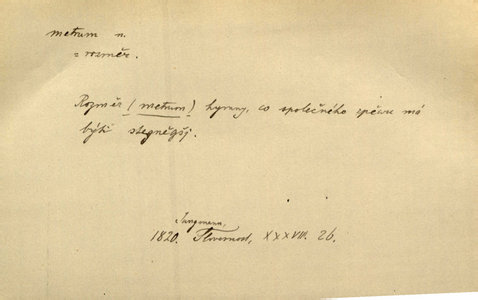 metrum n.
= rozměr.
Rozměr (metrum) hymny, co společného zpěvu má
býti stegněgšj.
Jungmann.
1820. Slovesnost, XXXVIII. 26.